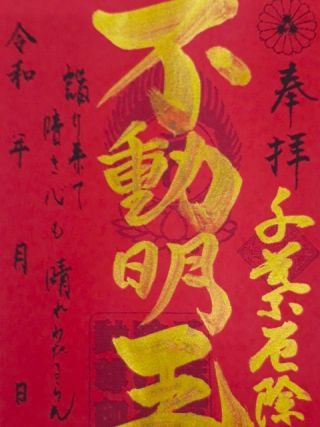 奉拝
千葉厄除
不動明王
詣り来て
暗き心も 晴れわたるらん
令和 年 月 日